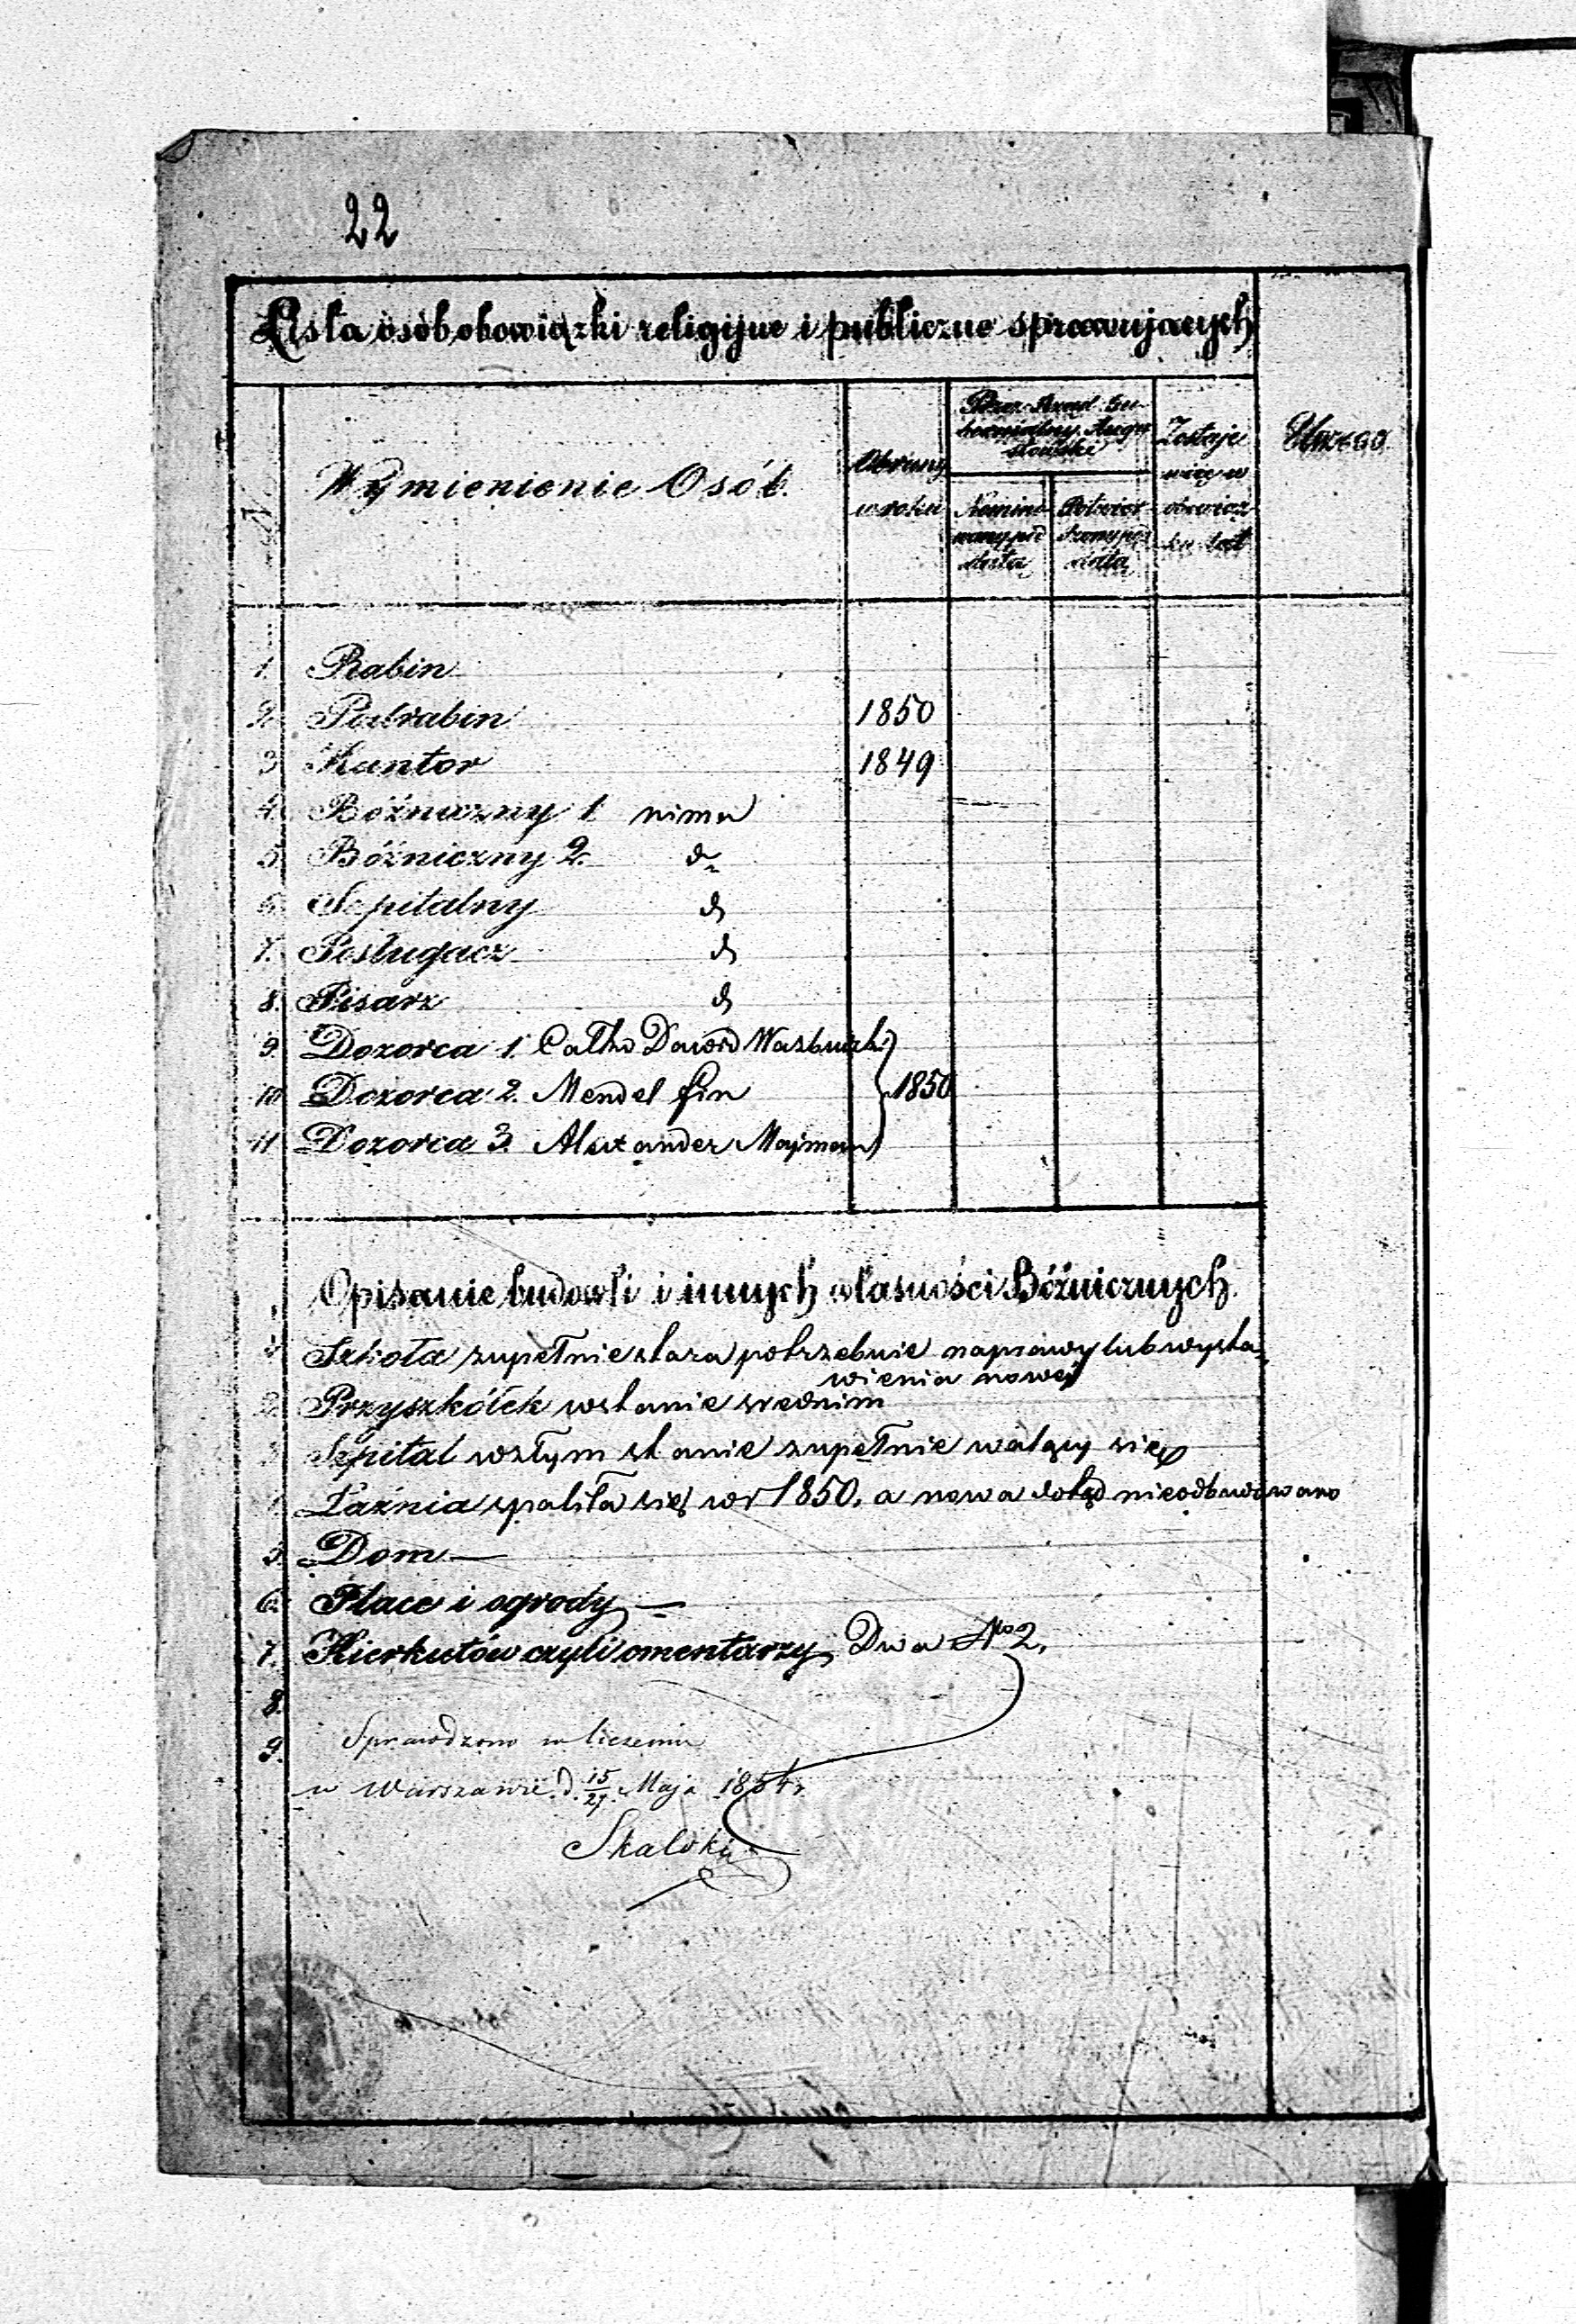 22
Lista osób obowiązki religijne i publiczne sprawujących
Wymienienie Osób.
Obrany
w roku
Przez Rząd Gu-
bernialny Augu-
stowski
Nomino-
wany pod
datą
Potwier-
dzony pod
datą
Zostaje
więc w
obowiąz-
ku lat
Uwaga
1. Rabin
2. Podrabin 1850
3 Kantor 1849
4. Bóżniczny 1. nima
5. Bóżniczny 2. d
6. Szpitalny d
7. Posługacz d
8. Pisarz d
9. Dozorca 1. Calko Dawid
10 Dozorca 2. Mendel fin 1850
11 Dozorca 3. Alexander Majman
Opisanie budowli i innych własności Bóżnicznych.
1. Szkoła zupełnie stara potrzebuie naprawy lub wysta-
wienia nowej
2. Przyszkółek w stanie srednim
3. Szpital w złym stanie zupełnie walący się
4. Łaźnia spaliła się w r 1850. a nowa dotąd nieodbudowano
5. Dom —
6. Place i ogrody —
7. Kierkutów czyli cmentarzy Dwa No 2.
8.
9. Sprawdzono w liczeniu
w Warszawie d. 15/27 Maja 1854 r.